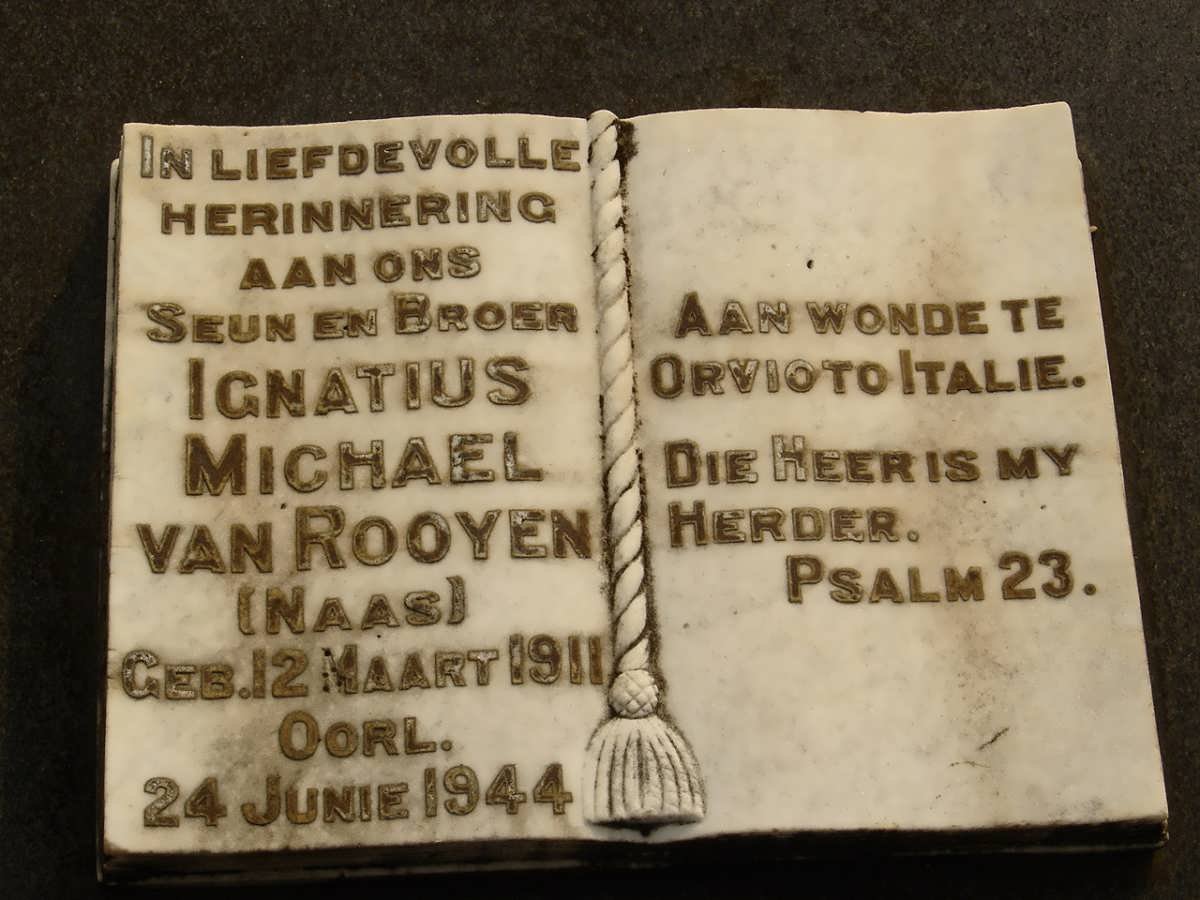 IN LIEFDEVOLLE
HERINNERING
AAN ONS
SEUN EN BROER
IGNATIUS
MICHAEL
VAN ROOYEN
(NAAS)
GEB. 12 MAART 1911
OORL.
24 JUNIE 1944
AAN WONDE TE
ORVIOTO ITALIE.
DIE HEER IS MY
HERDER.
PSALM 23.